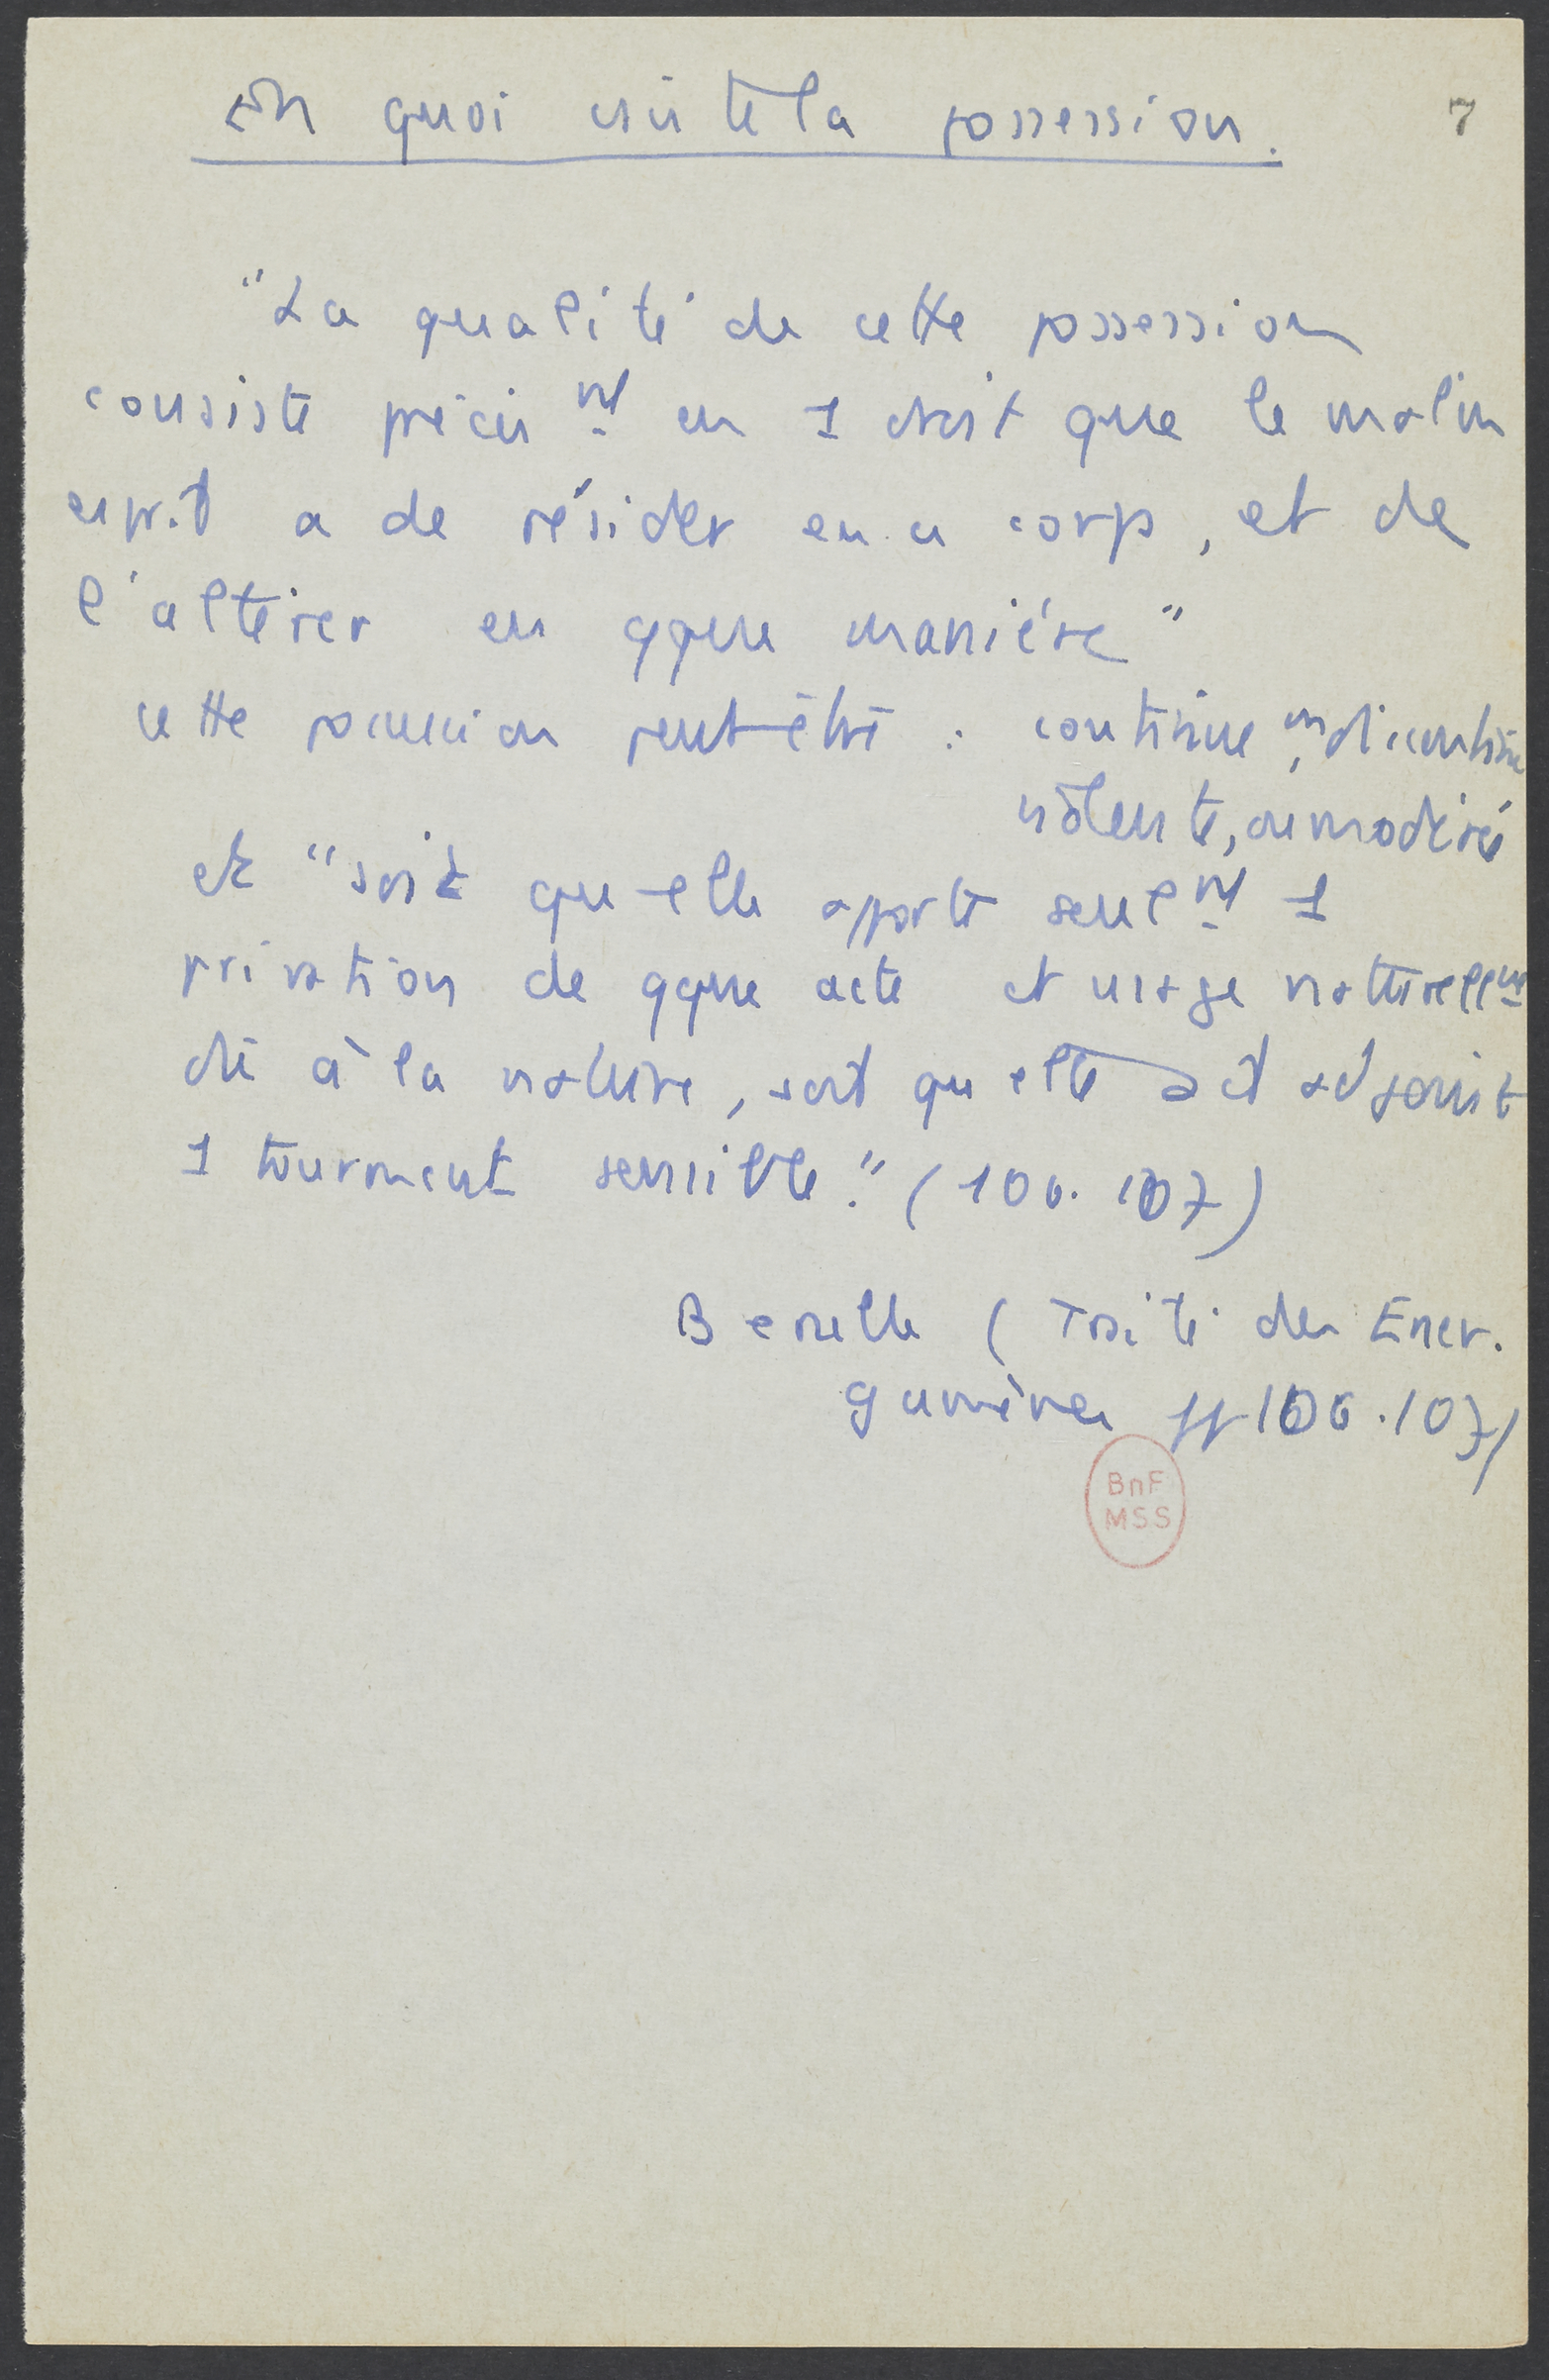 En quoi csiste la possession.
7
"La qualité de cette possession
consiste précismt en 1 droit que le malin
esprit a de résider en ce corps, et de
l'altérer en qque manière"
cette possession peut être : continue, ou discontinue
violente, ou modérée
et "soit qu'elle apporte seulmt 1
privation de qque acte et usage naturellmt
dû à la nature, soit qu'elle ait adjoint
1 tourment sensible." (106.107)
Berulle (Traité des Ener.
gumènes pp 106.107)
BnF
MSS